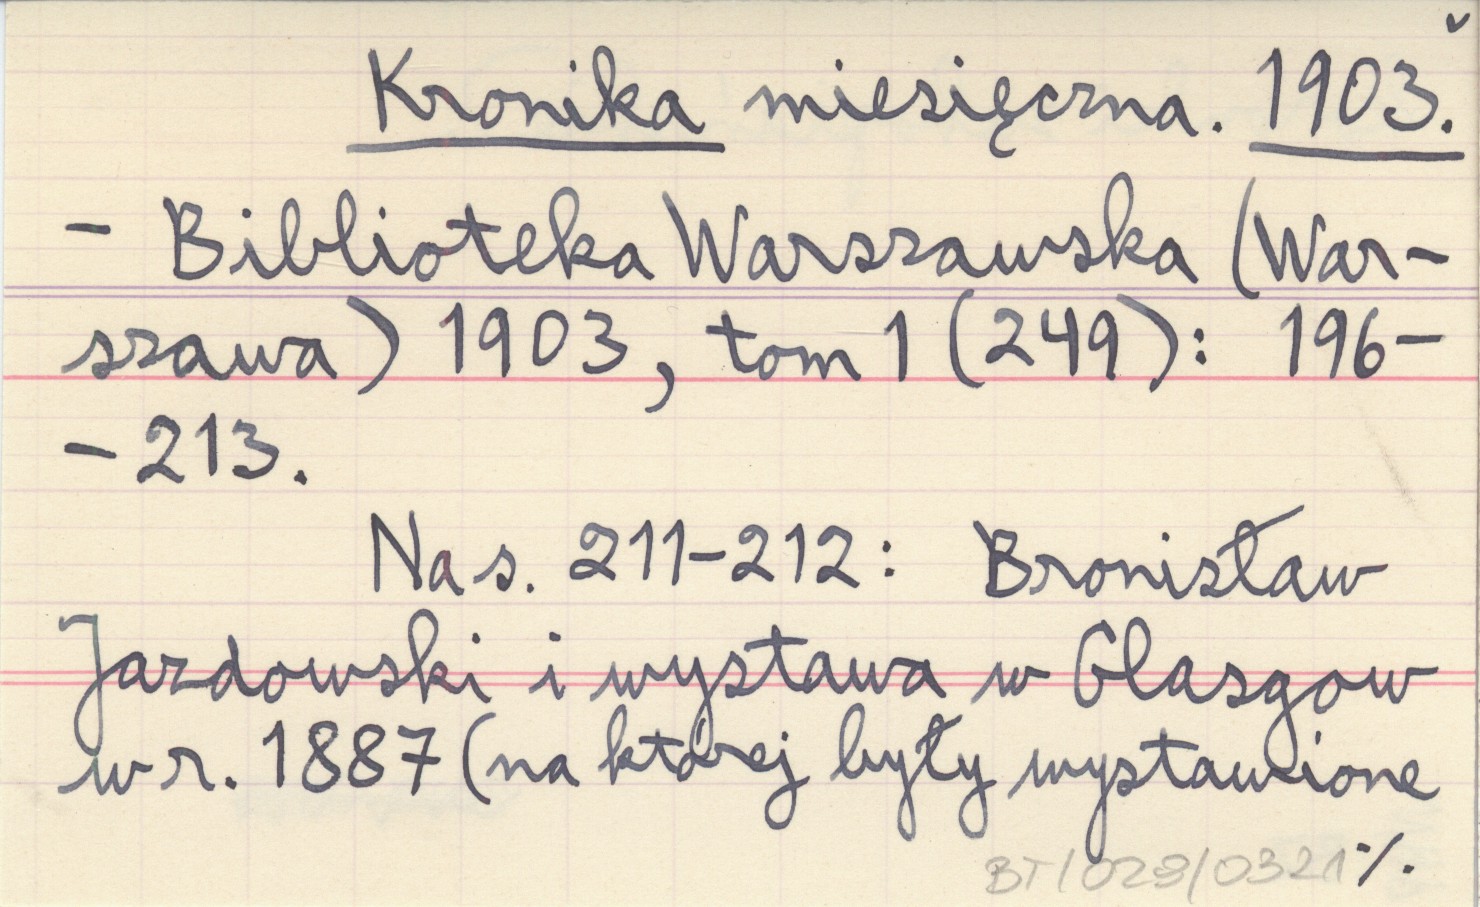 Kronika miesięczna. 1903.
- Biblioteka Warszawska (War-
szawa) 1903, tom 1 (249): 196-
- 213.
Na s. 211-212: Bronisław
Jazdowski i wystawa w Glasgow
w r. 1887 (na której były wystawione
BT/028/0321 ./.